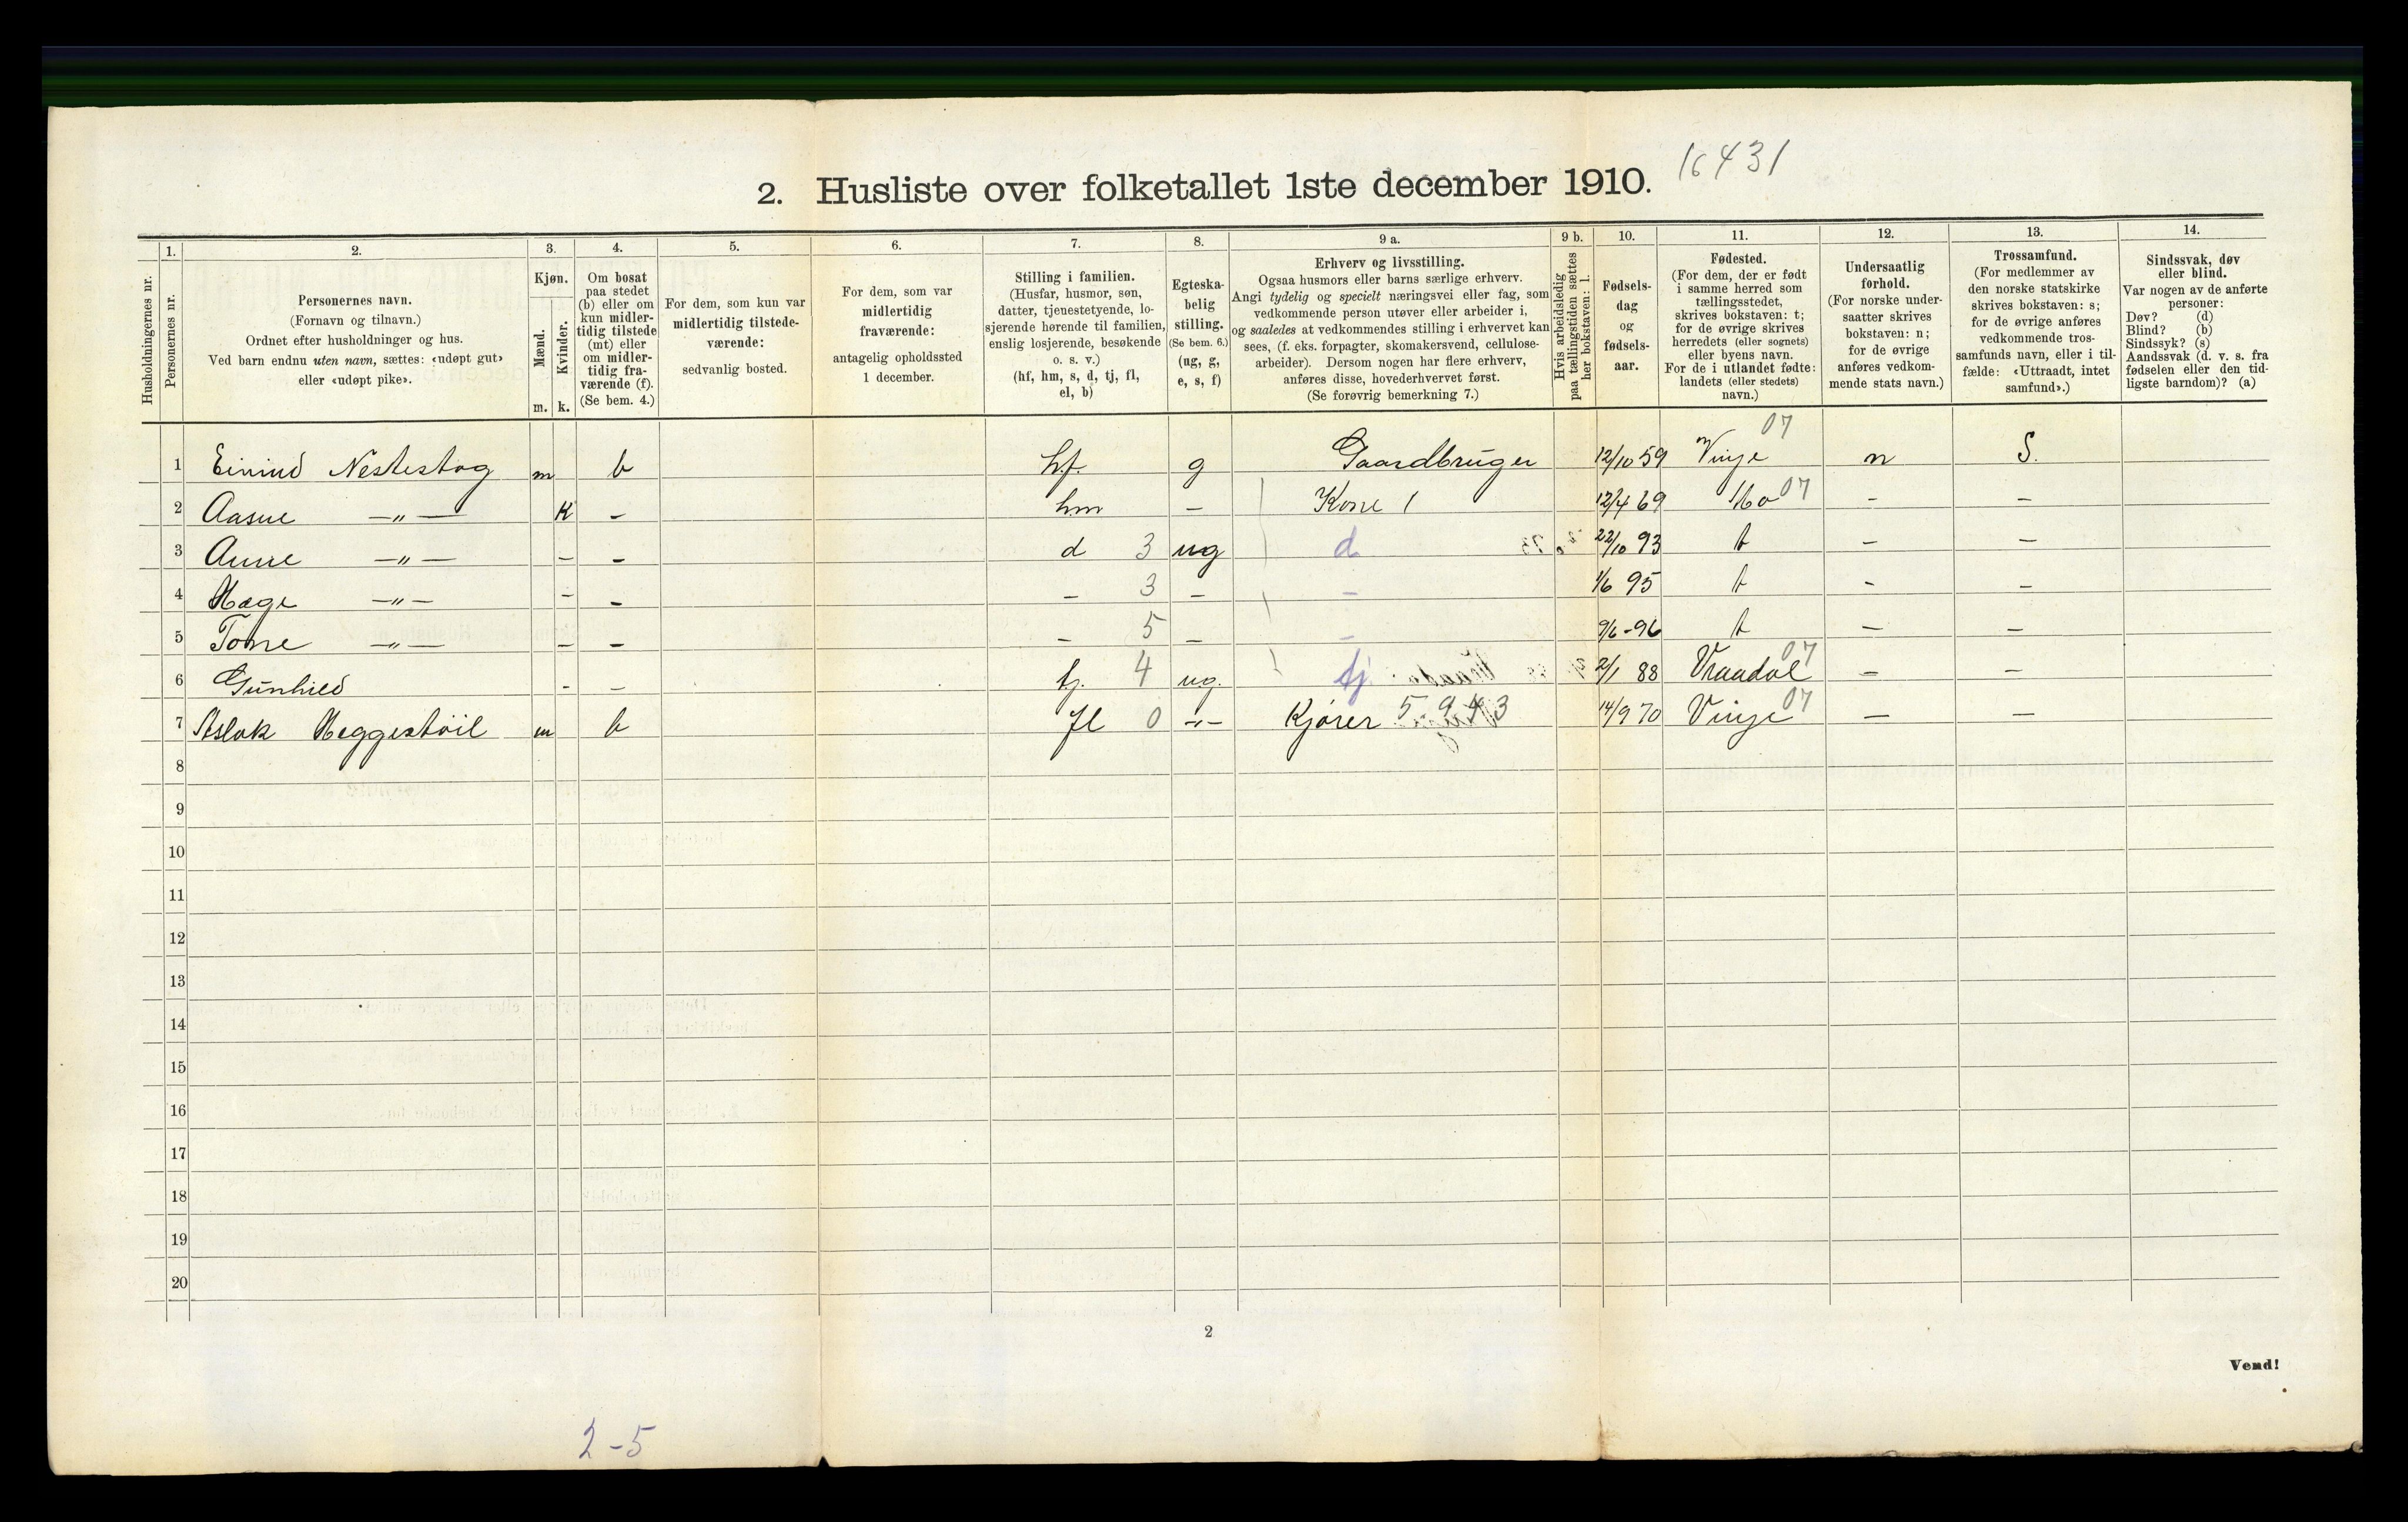 16431
2. Husliste over folketallet 1ste december 1910.
Husholdningernes nr.
1.
Personernes nr.
2.
Personernes navn.
(Fornavn og tilnavn.)
Ordnet efter husholdninger og hus.
Ved barn endnu uten navn, sættes: «udøpt gut»
eller «udøpt pike».
3.
Kjøn.
Mænd.
Kvinder.
m. k.
4.
Om bosat
paa stedet
(b) eller om
kun midler-
tidig tilstede
(mt) eller
om midler-
tidig fra-
værende (f).
(Se bem. 4.)
5.
For dem, som kun var
midlertidig tilstede-
værende:
sedvanlig bosted.
6.
For dem, som var
midlertidig
fraværende:
antagelig opholdssted
1 december.
7.
Stilling i familien.
(Husfar, husmor, søn,
datter, tjenestetyende, lo-
sjerende hørende til familien,
enslig losjerende, besøkende
o. s. v.)
(hf, hm, s, d, tj, fl,
el, b)
8.
Egteska-
belig
stilling.
(Se bem. 6.)
(ug, g,
e, s, f)
9 a.
Erhverv og livsstilling.
Ogsaa husmors eller barns særlige erhverv.
Angi tydelig og specielt næringsvei eller fag, som
vedkommende person utøver eller arbeider i,
og saaledes at vedkommendes stilling i erhvervet kan
sees, (f. eks. forpagter, skomakersvend, cellulose-
arbeider). Dersom nogen har flere erhverv,
anføres disse, hovederhvervet først.
(Se forøvrig bemerkning 7.)
9 b.
Hvis arbeidsledig
paa tællingstiden sættes
her bokstaven: l.
10.
Fødsels-
dag
og
fødsels-
aar.
11.
Fødested.
(For dem, der er født
i samme herred som
tællingsstedet,
skrives bokstaven: t;
for de øvrige skrives
herredets (eller sognets)
eller byens navn.
For de i utlandet fødte:
landets (eller stedets)
navn.)
12.
Undersaatlig
forhold.
(For norske under-
saatter skrives
bokstaven: n;
for de øvrige
anføres vedkom-
mende stats navn.)
13.
Trossamfund.
(For medlemmer av
den norske statskirke
skrives bokstaven: s;
for de øvrige anføres
vedkommende tros-
samfunds navn, eller i til-
fælde: «Uttraadt, intet
samfund».)
14.
Sindssvak, døv
eller blind.
Var nogen av de anførte
personer:
Døv? (d)
Blind? (b)
Sindssyk? (s)
Aandssvak (d. v. s. fra
fødselen eller den tid-
ligste barndom)? (a)
1 Eivind Nestestog m b hf. g Gaardbruger 12/10 59 Vinje 07 n S.
2 Aasne —„— K - hm - Kone 1 12/4 69 Mo 07 - -
3 Anne —„— - - d 3 ug d 22/10 93 t - -
4 Hæge —„— - - - 3 - - 1/6 95 t - -
5 Tone —„— - - - 5 - - 9/6-96 t - -
6 Gunhild - - tj. 4 ug. tj 2/1 88 Vraadal 07 - -
7 Aslak Heggestöil m b fl 0 -„- Kjører 5 9 4 3 14/9 70 Vinje 07 - -
8
9
10
11
12
13
14
15
16
17
18
19
20
2
Vend!
2-5